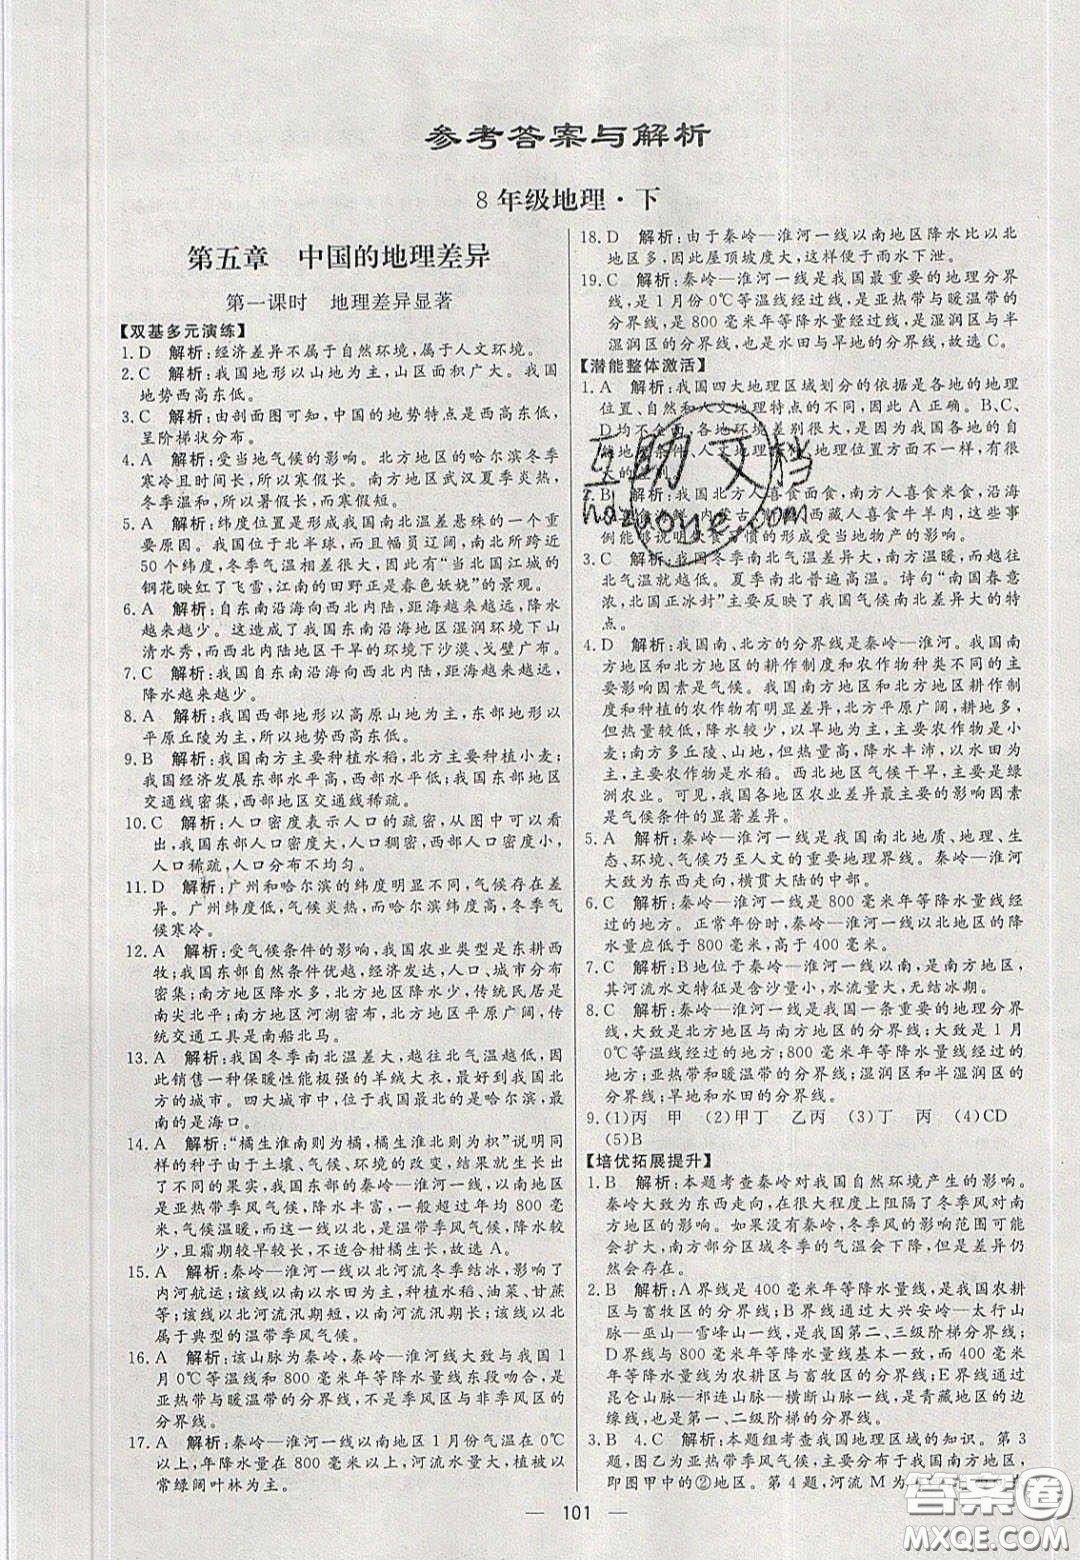 参考答案与解析
8年级地理·下
第五章　中国的地理差异
第一课时　地理差异显著
【双基多元演练】
1. D　解析:经济差异不属于自然环境,属于人文环境。
2. C　解析:我国地形以山地为主,山区面积广大。我国
地势西高东低。
3. C　解析:由剖面图可知,中国的地势特点是西高东低,
呈阶梯状分布。
4. A　解析:受当地气候的影响。北方地区的哈尔滨冬季
寒冷且时间长,所以寒假长。南方地区武汉夏季炎热,
冬季温和,所以暑假长,而寒假短。
5. A　解析:纬度位置是形成我国南北温差悬殊的一个重
要原因。我国位于北半球,而且幅员辽阔,南北所跨近
50个纬度,冬季气温相差很大,因此有“当北国江城的
钢花映红了飞雪,江南的田野正是春色妖娆”的景观。
6. A　解析:自东南沿海向西北内陆,距海越来越远,降水
越来越少。这造成了我国东南沿海地区湿润环境下山
清水秀,而西北内陆地区干旱的环境下沙漠、戈壁广布。
7. C　解析:我国自东南沿海向西北内陆,距海越来越远,
降水越来越少。
8. A　解析:我国西部地形以高原山地为主,东部地形以
平原丘陵为主,所以我国地势西高东低。
9. B　解析:我国南方主要种植水稻,北方主要种植小麦;
我国经济发展东部水平高,西部水平低;我国东部地区
交通线密集,西部地区交通线稀疏。
10. C　解析:人口密度表示人口的疏密,从图中可以看
出,我国东部人口密度大,人口密集,西部人口密度小,
人口稀疏,人口分布不均匀。
11. D　解析:广州和哈尔滨的纬度明显不同,气候存在差
异。广州纬度低,气候炎热,而哈尔滨纬度较高,冬季气
候寒冷。
12. A　解析:受气候条件的影响,我国农业类型是东耕西
牧;我国东部自然条件优越,经济发达,人口、城市分布
密集;南方地区降水多,北方地区降水少,传统民居是
南尖北平;南方地区河湖密布,北方地区河湖较少,传
统交通工具是南船北马。
13. A　解析:我国冬季南北温差大,越往北气温越低,因
此销售一种保暖性能极强的羊绒大衣,最好是我国北
方的城市。四大城市中,我国最北的城市是哈尔滨,最
南的是海口。
14. A　解析:“橘生淮南则为橘,橘生淮北则为枳”说明同
样的种子由于土壤、气候、环境的改变,结果生长出不
同的果实,我国东部的秦岭—淮河一线以南地区
是亚热带季风气候,降水丰富,一般超过年均800毫
米,气候温暖,而这一线以北,是温带季风气候,降水较
少,且霜期较早较长,不适合柑橘生长,故选A。
15. A　解析:秦岭—淮河一线以北河流冬季结冰,影响了
内河航运;该线以南以水田为主,种植水稻、油菜、甘蔗
等;该线以北河流汛期短,以南河流汛期长;该线以北
属于典型的温带季风气候。
16. A　解析:该山脉为秦岭,秦岭—淮河线大致与我国1
月0℃等温线和800毫米年等降水量线东段吻合,是亚
热带与暖温带的分界线,不是季风区与非季风区的
分界线。
17. A　解析:秦岭—淮河一线以南地区1月份气温在0℃
以上,年降水量在800毫米以上,耕地以水田为主,植被以
常绿阔叶林为主。
18. D　解析:由于秦岭—淮河一线以南地区降水比以北
地区多,因此屋顶坡度大,这样便于雨水下泄。
19. C　解析:秦岭—淮河一线是我国最重要的地理分界
线,是1月份0℃等温线经过的地方,是亚热带与暖温带的
分界线,是800毫米年等降水量的分界线,是湿润区与半
湿润区的分界线,也是水田与旱地的分界线,故选C。
【潜能整体激活】
1. A　解析:我国四大地理区域划分的依据是各地的地理
位置、自然和人文地理特点的不同,因此A正确。B、C、
D均不全面,各地环境差别很大,是因为我国各地的自
2. B　解析:我国北方人喜食面食,南方人喜食米食,沿海
3. C　解析:我国冬季南北气温差异大,南方温暖,而越往
北气温就越低。夏季南北普遍高温。诗句“南国春意
浓,北国正冰封”主要反映了我国气候南北差异大的特
点。
4. D　解析:我国南、北方的分界线是秦岭—淮河。我国南
方地区和北方地区的耕作制度和农作物种类不同的主
要影响因素是气候。我国南方地区和北方地区耕作制
度和种植的农作物有明显差异,北方平原广阔,耕地多,
但热量较低,降水较少,以旱地为主,主要农作物是小
麦;南方多丘陵、山地,但热量高,降水丰沛,以水田为
主,主要农作物是水稻。西北地区气候干旱,主要是绿
洲农业。可见,我国各地区农业差异最大的影响因素
是气候条件的显著差异。
5. A　解析:秦岭—淮河一线是我国南北地质、地理、生
态、环境、气候乃至人文的重要地理界线。秦岭—淮河
大致为东西走向,横贯大陆的中部。
6. C　解析:秦岭—淮河一线是800毫米年等降水量线经
过的地方。正常年份时,秦岭—淮河一线以北地区的降
水量应低于800毫米,高于400毫米。
7. C　解析:B地位于秦岭—淮河一线以南,是南方地区,
其河流水文特征是含沙量小,水流量大,无结冰期。
8. C　解析:秦岭—淮河一线是我国一条重要的地理分界
线,大致是北方地区与南方地区的分界线;大致是1月
0℃等温线经过的地方;800毫米年等降水量线经过的地
方;亚热带和暖温带的分界线;湿润区和半湿润区的分
界线;旱地和水田的分界线。
9. (1)丙　甲　(2)甲丁　乙丙　(3)丁　丙　(4)CD
(5)B
【培优拓展提升】
1. B　解析:本题考查秦岭对我国自然环境产生的影响。
秦岭大致为东西走向,在很大程度上阻隔了冬季风对南
方地区的影响。如果没有秦岭,冬季风的影响范围可能
会扩大,南方部分区域冬季的气温会下降,但是差异仍
然会存在。
2. B　解析:A界线是400毫米年等降水量线,是我国农耕
区与畜牧区的分界线;B界线通过大兴安岭—太行山
脉—巫山—雪峰山一线,是我国第二、三级阶梯分界线;
D界线与400毫米年等降水量线基本一致,而400毫米年等
降水量线为农耕区与畜牧区的分界线;E界线经过
昆仑山脉—祁连山脉—横断山脉一线,是青藏地区的边
缘线,也是第一、二级阶梯的分界线。
3. B　4. C　解析:本题组考查我国地理区域的知识。第3
题,图乙为亚热带季风气候,主要分布于我国南方地区,
即图甲中的②地区。第4题,河流M为
101
互助文档
hdzuoye.com
答案圈
MXQE.COM